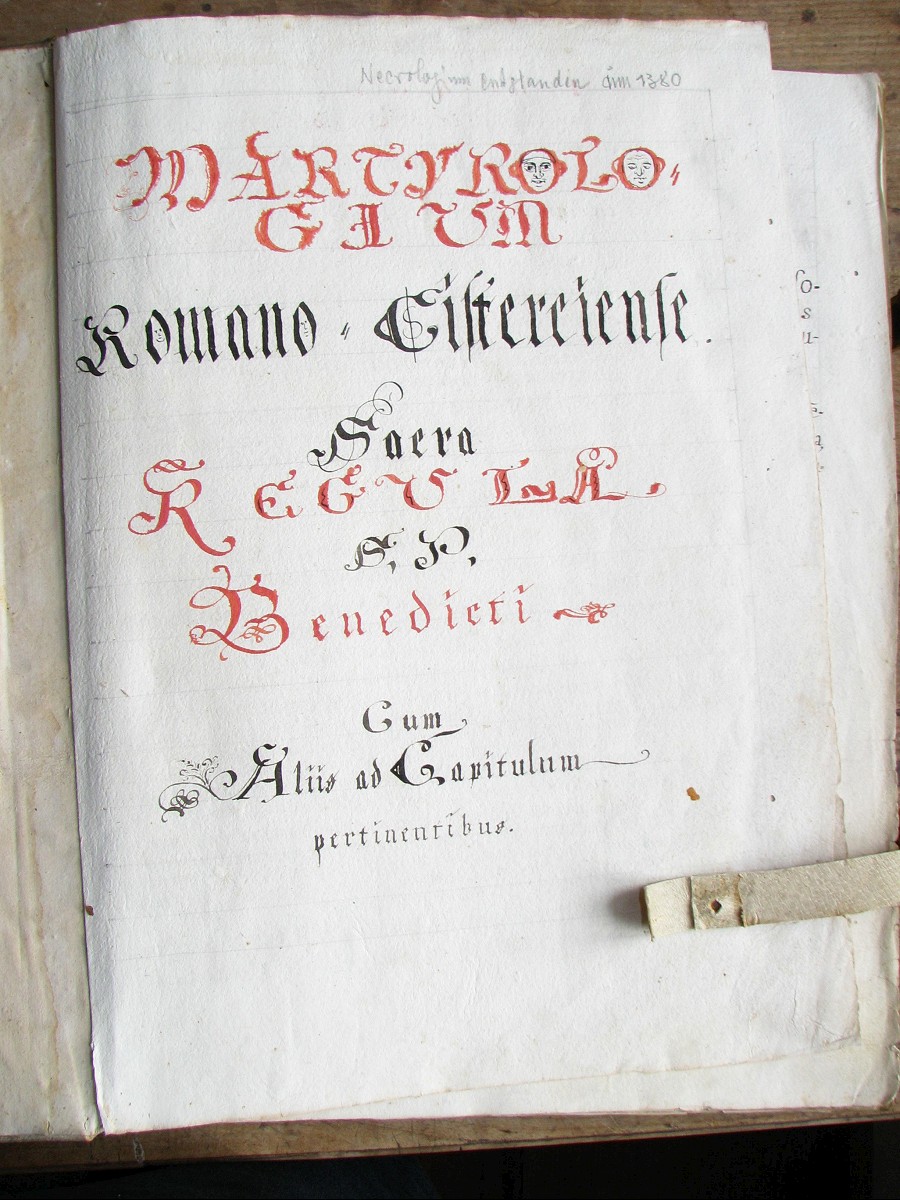 Necrologium entstanden um 1380
MARTYROLO-
GIUM
Romano - Cisterciense.
Sacra
REGULA
S. P.
Benedicti
Cum
Aliis ad Capitulum
pertinentibus.
so-
s
u-
a,